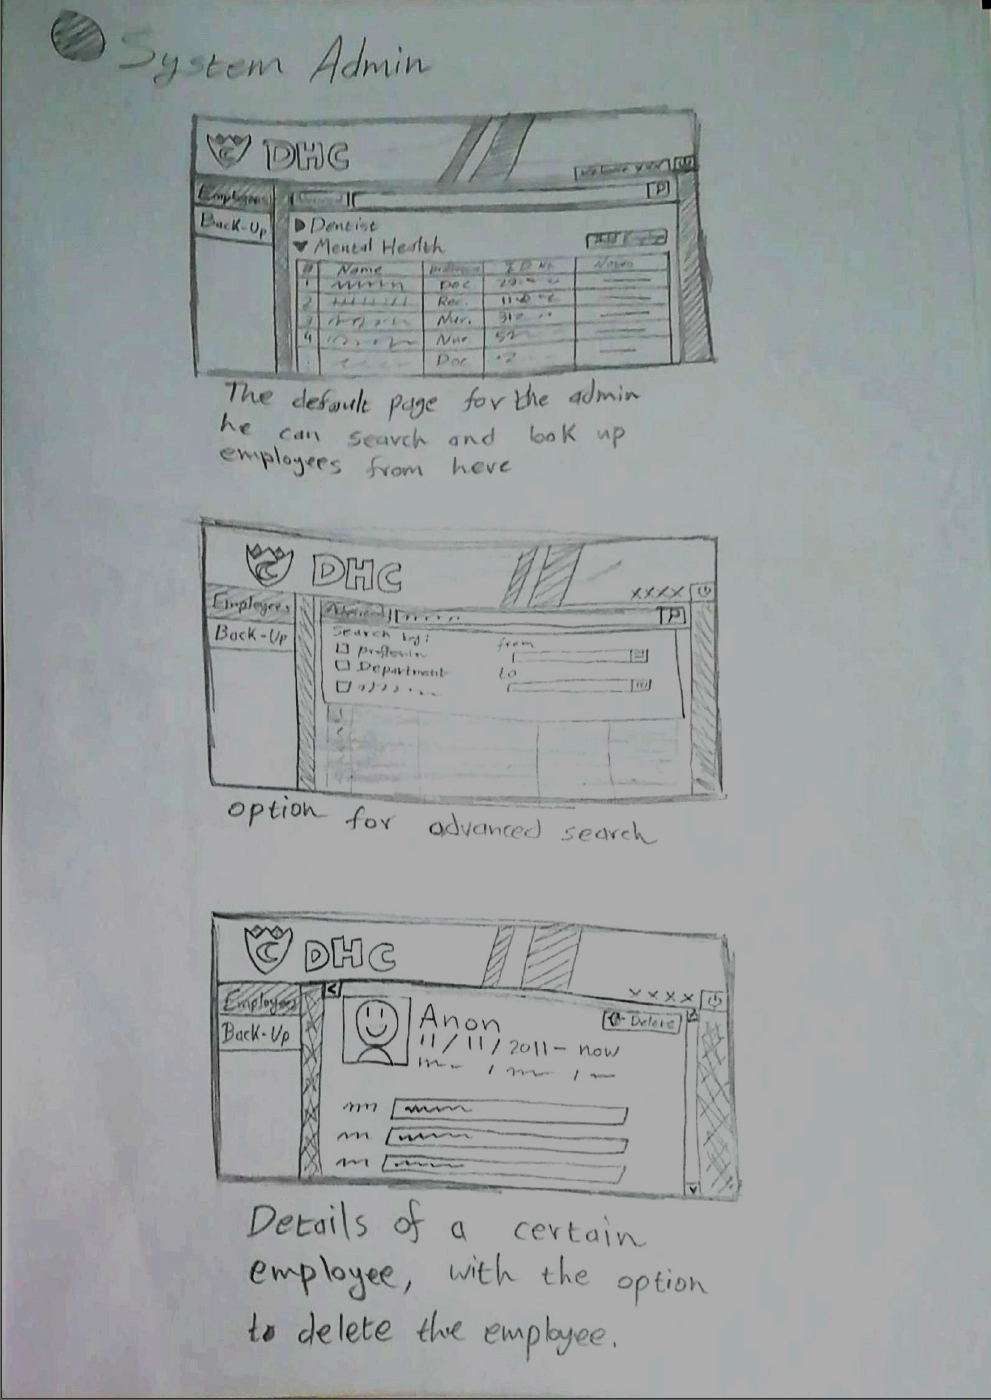 System Admin
DHC
Employees
Back-Up
Dentist
Mental Health
# Name I D No Notes
1 Doc
2 Rec.
3 Nur.
4 Nur
Doc
The default page for the admin
he can search and look up
employees from here
DHC
XXXX
Employees
Back-Up
Advanced
Search by:
Department
from
to
option for advanced search
DHC
XXXX
Employees
Back-Up
Anon
11/11/2011- now
Delete
Details of a certain
employee, with the option
to delete the employee.